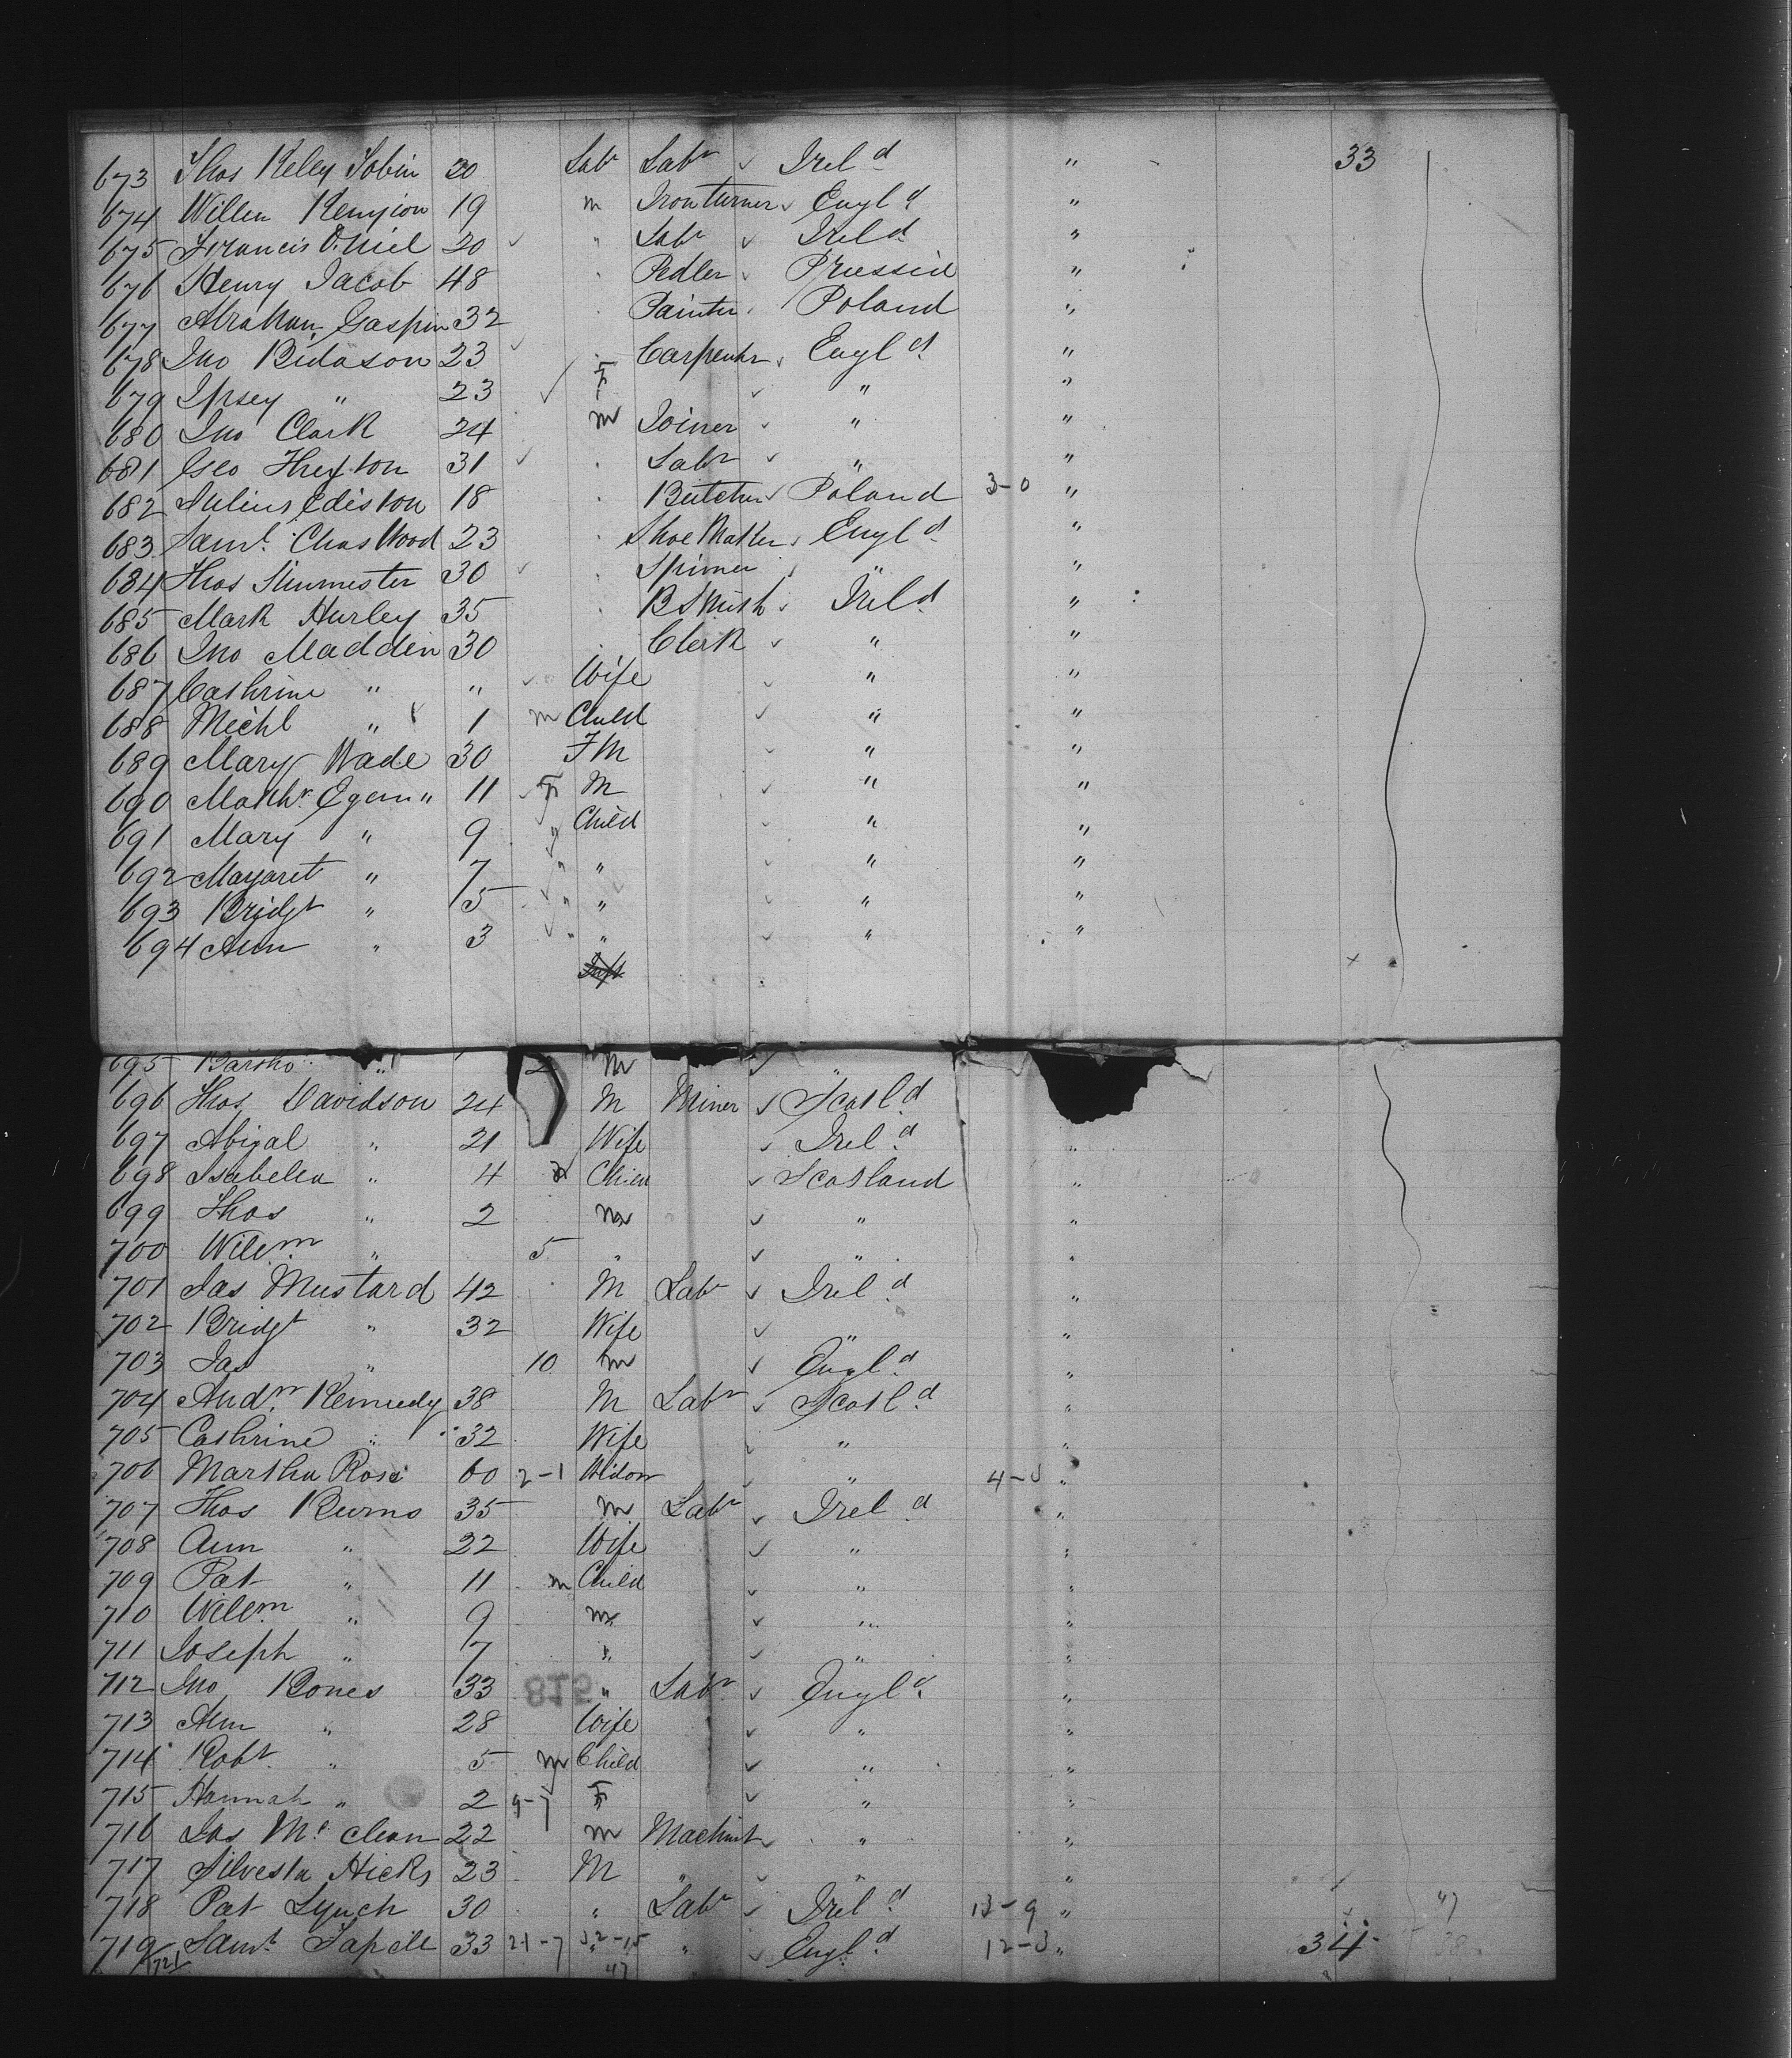 673 Thos Kelley Tobin 20 Labr Labr ✓ Ireld " 33
674 Willm Kenyion 19 m Iron turner ✓ Engld "
675 Francis O.Niel 20 ✓ " Labr ✓ Ireld "
676 Henry Jacob 48 Pedler ✓ Prussia "
677 Abraham Gaspin 32 Painter Poland "
678 Jno Bidason 23 ✓ Carpenter ✓ Engld "
679 Ipsey " 23 ✓ F ✓ " "
680 Jno Clark 24 m Joiner ✓ " "
681 Geo Heyton 31 ✓ Labr ✓ " "
682 Julius Ediston 18 Butcher ✓ Poland 3-0 "
683 Saml Chas Wood 23 Shoe Maker Engld "
684 Thos 30 ✓ Spinner " "
685 Mark Hurley 35 B Smith ✓ Ireld "
686 Jno Madden 30 Clerk ✓ " "
687 Cathrine " " ✓ Wife ✓ " "
688 Michl " 1 m Child ✓ " "
689 Mary Wade 30 F M ✓ " "
690 Mathw Egan " 11 ✓ F M ✓ " "
691 Mary " 9 Child ✓ " "
692 Magaret " 7 " " ✓ " "
693 Bridgt " 5 ✓ " " ✓ " "
694 Ann " 3 ✓ " " ✓ " "
Inft
695 " 2 m ✓ "
696 Thos Davidson 24 M Miner ✓ Scotld
697 Abigal " 21 Wife ✓ Ireld "
698 Isabella " 4 Child ✓ Scotland "
699 Thos " 2 m ✓ " "
700 Willm " 5 " ✓ " "
701 Jas Mustard 42 M Labr ✓ Ireld "
702 Bridgt " 32 Wife ✓ " "
703 Jas " 10 m ✓ Engld "
704 Andw Kennedy 38 M Labr ✓ Scotld "
705 Cathrine " 32 Wife ✓ " "
706 Martha Rose 60 2-1 Widow ✓ " 4-0 "
707 Thos Burns 35 m Labr ✓ Ireld "
708 Ann " 22 Wife ✓ " "
709 Pat " 11 m Child ✓ " "
710 Willm " 9 m ✓ " "
711 Joseph " 7 " ✓ " "
712 Jno Bones 33 " Labr ✓ Engld "
713 Ann " 28 Wife ✓ " "
714 Robt " 5 m Child ✓ " "
715 Hannah " 2 9-7 F ✓ " "
716 Jas Mc clean 22 m Machinst ✓ " "
717 Silvesta Hicks 23 M " ✓ " "
718 Pat Lynch 30 " Labr ✓ Ireld 13-9 " 47
719 Saml 33 21-7 52-15 " ✓ Engld 12-3 " 34 38
721 47